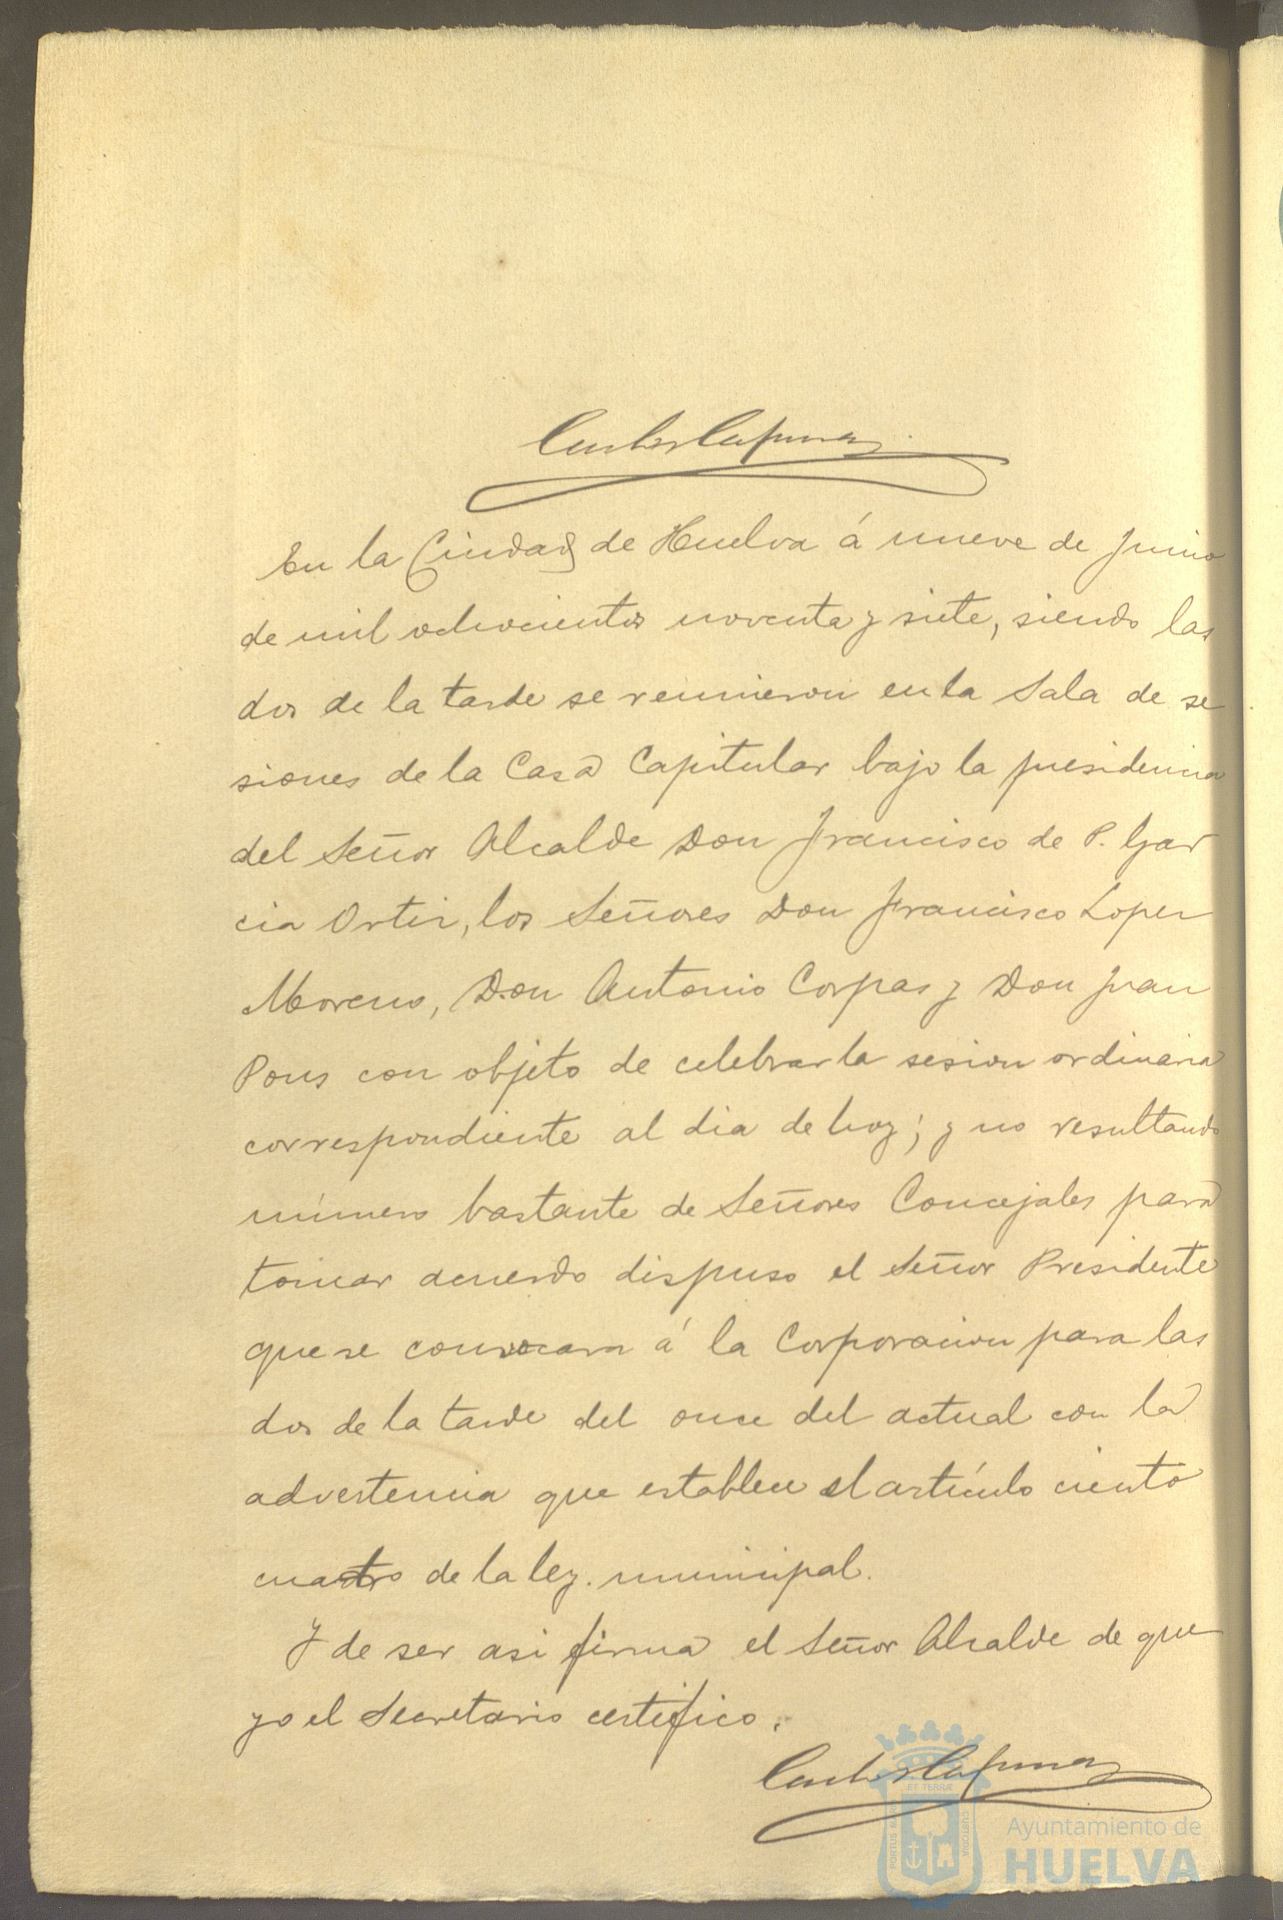 En la Ciudad de Huelva á nueve de Junio
de mil ochocientos noventa y siete, siendo las
dos de la tarde se reunieron en la Sala de se
siones de la Casa Capitular bajo la presidencia
del Señor Alcalde Don Francisco de P. Gar
cia Ortiz, los Señores Don Francisco Lopez
Moreno, Don Antonio Corpas y Don Juan
Pons con objeto de celebrar la sesion ordinaria
correspondiente al dia de hoy; y no resultando
número bastante de Señores Concejales para
tomar acuerdo dispuso el Señor Presidente
que se convocara á la Corporacion para las
dos de la tarde del once del actual con la
advertencia que establece el artículo ciento
cuatro de la ley municipal.
Y de ser asi firma el Señor Alcalde de que
yo el Secretario certifico.
Ayuntamiento de
HUELVA